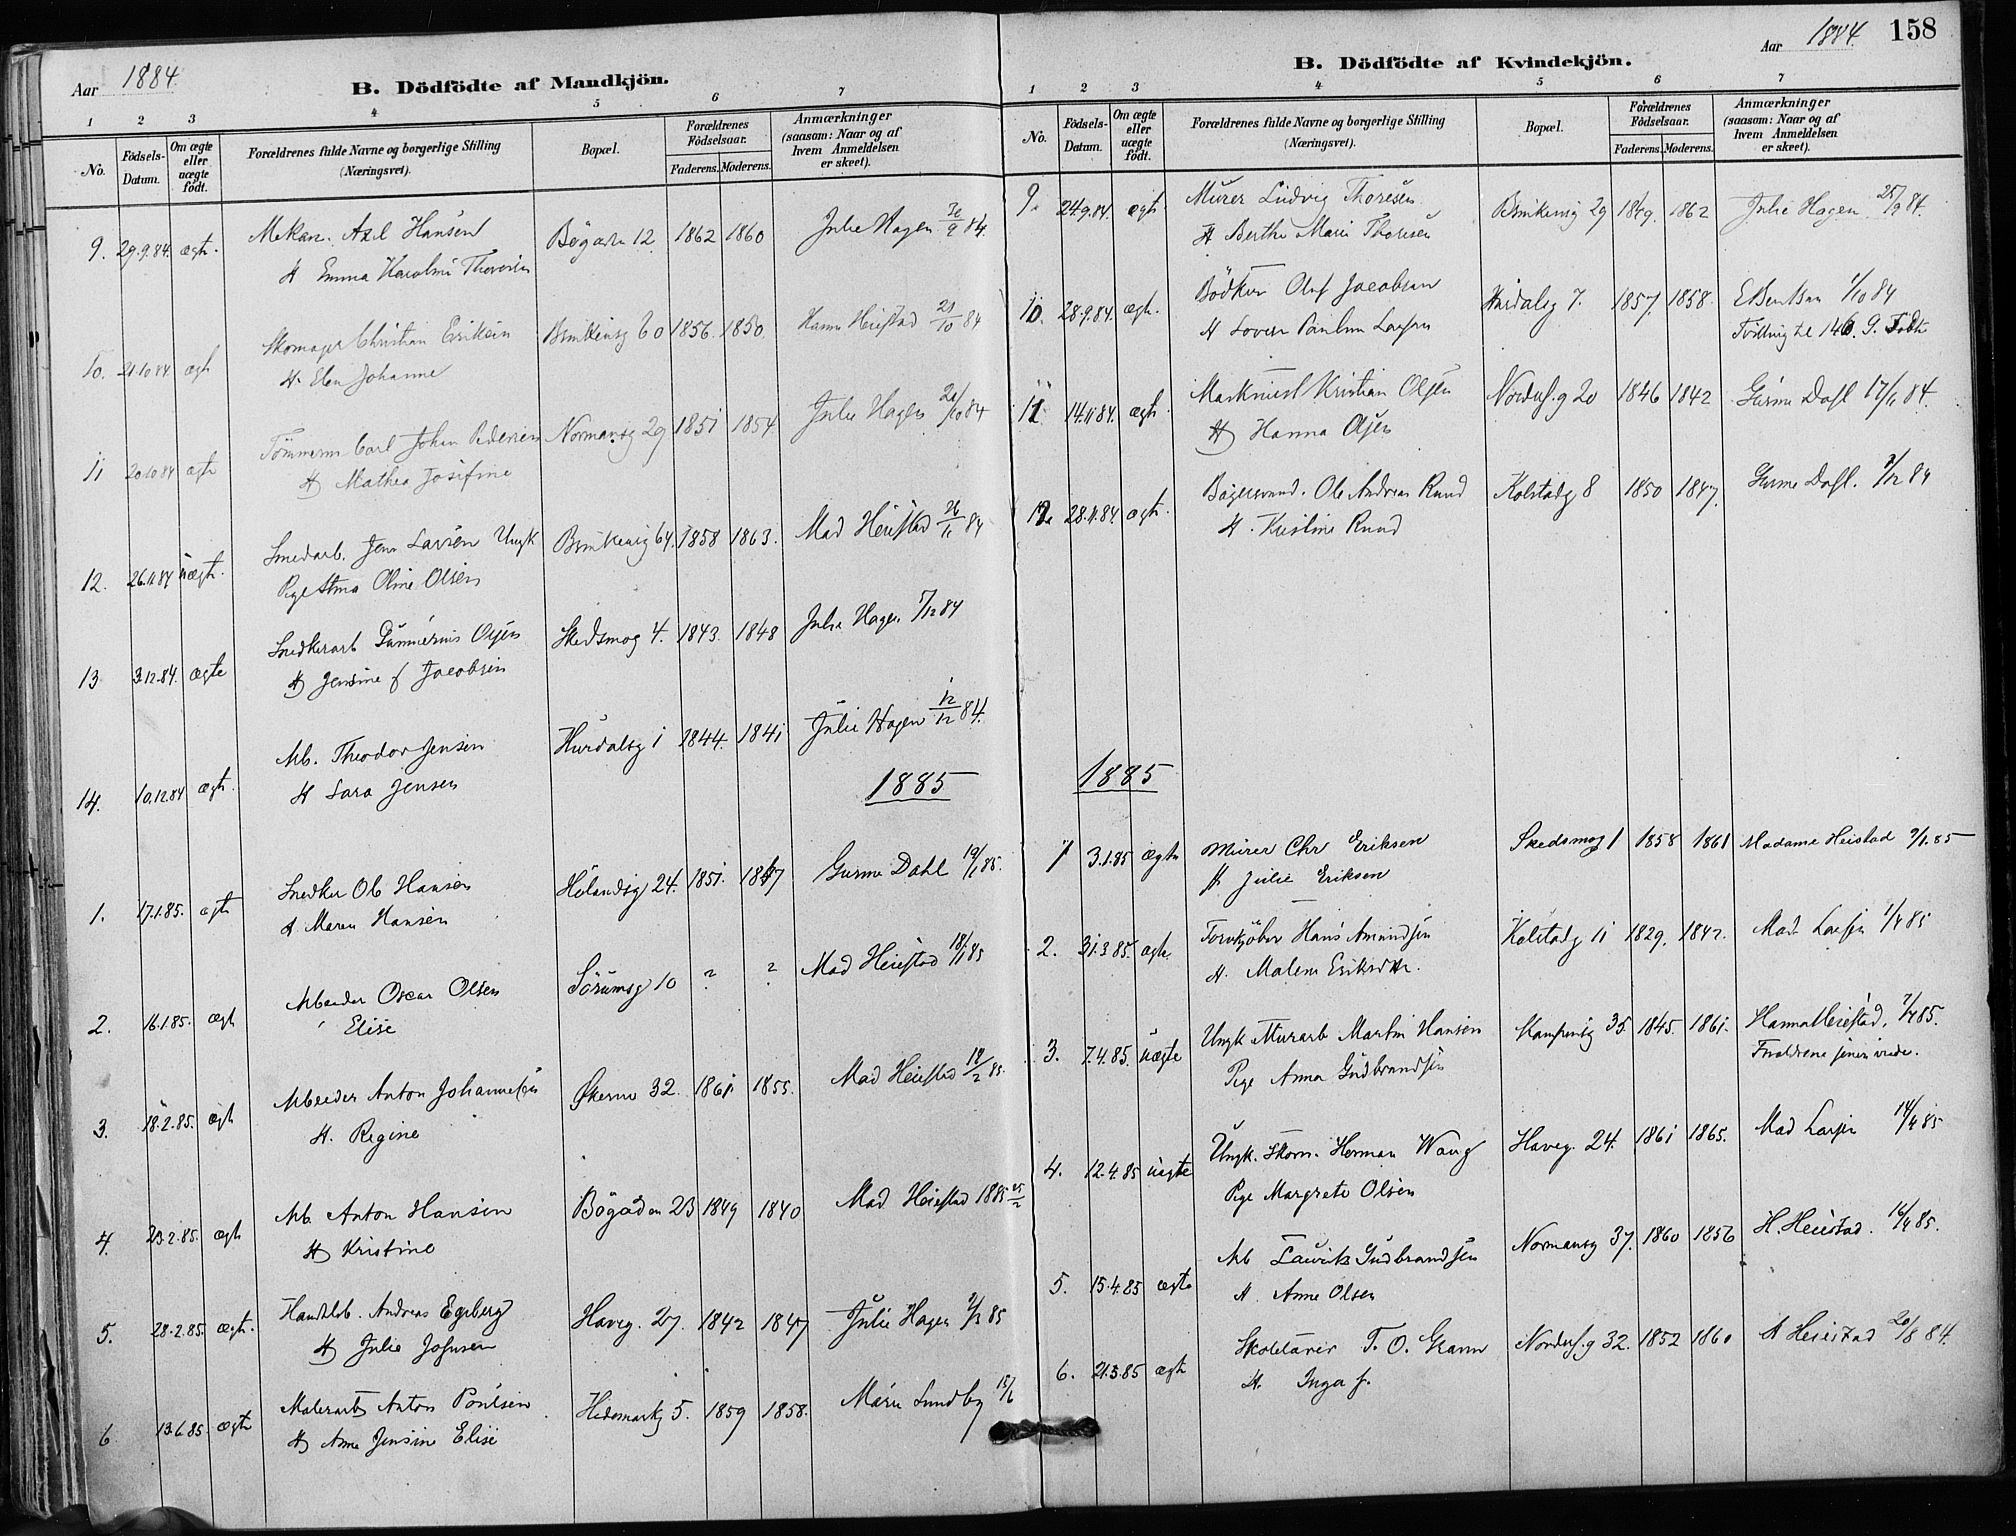 Aar 1884.
B. Dödfödte af Mandkjön.
1 2 3 4 5 6 7
No. Födsels-Datum. Om ægte eller uægte födt. Forældrenes fulde Navne og borgerlige Stilling (Næringsvei). Bopæl. Forældrenes Födselsaar. Faderens. Moderens. Anmærkninger (saasom: Naar og af hvem Anmeldelsen er skeet).
9. 29.9.84. ægte. Mekan. Axl Hansen Bögaden 12 1862 1860 Julie Hagen 30/9 84.
H Emma Karoline Thoresen
10. 21.10 84 ægte Skomager Christian Eriksen Brinkensg 60 1856. 1850. Hanna Heiestad 21/10 84
H. Elen Johanne
11 20.10 84 ægte Tömmerm Carl Johan Pedersen Normansg 29 1851 1854 Julie Hagen 21/10 84
H Mathea Josifine
12. 26.11 84 uægte. Smedarb. Jens Larsen Ungk Brinkensg 64. 1858 1863. Mad Heiestad 26/11 84
Pige Oline Olsen
13 3.12.84. ægte Snedkerarb Olsen Skedsmog 4. 1843. 1848 Julie Hagen 5/12 84
H Jensine f Jacobsen
14. 10.12.84 ægte. Arb. Theodor Jensen Hurdalsg 1 1844. 1841 Julie Hagen 12/12 84.
H Lara Jensen
1885
1. 17.1.85. ægte Snedker Ole Hansen Hölandsg 24. 1851. 1847 Gurine Dahl 19/1 85.
H Maren Hansen
2. 16.1.85. ægte Arbeider Oscar Olsen Sörumsg 10 ? ? Mad Heiestad 18/1 85
Elise
3. 18.2.85. ægte Arbeider Anton Johannesen Økernv 32. 1861 1855. Mad Heiestad 19/2 85.
H. Regine
4. 23.2.85. ægte Arb Anton Hansen Bögaden 23 1849 1840 Mad Heiestad 1885 25/2
H Kristine
5. 28.2.85. ægte. Handelsb. Andreas Egeberg Haveg. 27. 1842 1847 Julie Hagen 2/3 85
H Julie Josefsen
6 13.6.85 ægte Malerarb Anton Poulsen Hedemarksg 5. 1859 1858. Marie Lundby 15/6
H Anne Jensine Elise
Aar 1884. 158
B. Dödfödte af Kvindekjön.
1 2 3 4 5 6 7
No. Födsels-Datum. Om ægte eller uægte födt. Forældrenes fulde Navne og borgerlige Stilling (Næringsvei). Bopæl. Forældrenes Födselsaar. Faderens. Moderens. Anmærkninger (saasom: Naar og af hvem Anmeldelsen er skeet).
9. 24.9.84. ægte Murer Ludvig Thoresen Brinkensg 29 1849. 1862 Julie Hagen 25/9 84.
H Berthe Marie Thoresen
10. 28.9.84. ægte. Bödker Oluf Jacobsen Hurdalsg 7. 1857. 1858. E Bentsen 1/10 84
H Lovise Pauline Larsen Tvilling til 146. 9.
11 14.11 84. ægte Kristian Olsen Nordahl.g 20 1846 1842 Gurine Dahl 17/11 84.
H Hanna Olsen
12. 28.11.84. ægte. Bagersvend. Ole Andreas Rund Kolstadg 8 1850 1847. Gurine Dahl. 1/12 84
H. Kristine Rund
1885
1 3.1.85 ægte Murer Chr Eriksen Skedsmog 1 1858 1861 Madame Heistad 9/1.85
H Julie Eriksen
2. 31.3.85. ægte Hans Amundsen Kolstadg 11 1829. 1842. Mad Larsen 1/4 85
H. Malene Eriksdtr.
3. 7.4.85. uægte Ungk Murarb Martin Hansen Kampensg 35. 1845. 1861. Hanna Heiestad. 7/4 85.
Pige Anna Gudbrandsen Forældrene senere viede.
4. 12.4.85 uægte Ungk. Skom. Herman Wang Haveg. 24. 1861 1865. Mad Larsen 14/4 85
Pige Margrete Olsen
5. 15.4.85 ægte Arb Lauritz Gudbrandsen Normansg 37. 1860 1856 H. Heiestad. 16/4 85.
H. Anne Olsen
6. 21.3.85 ægte T. O. Nordahl.g 32. 1852 1860 H Heiestad 20/8 84.
H. Inga f.